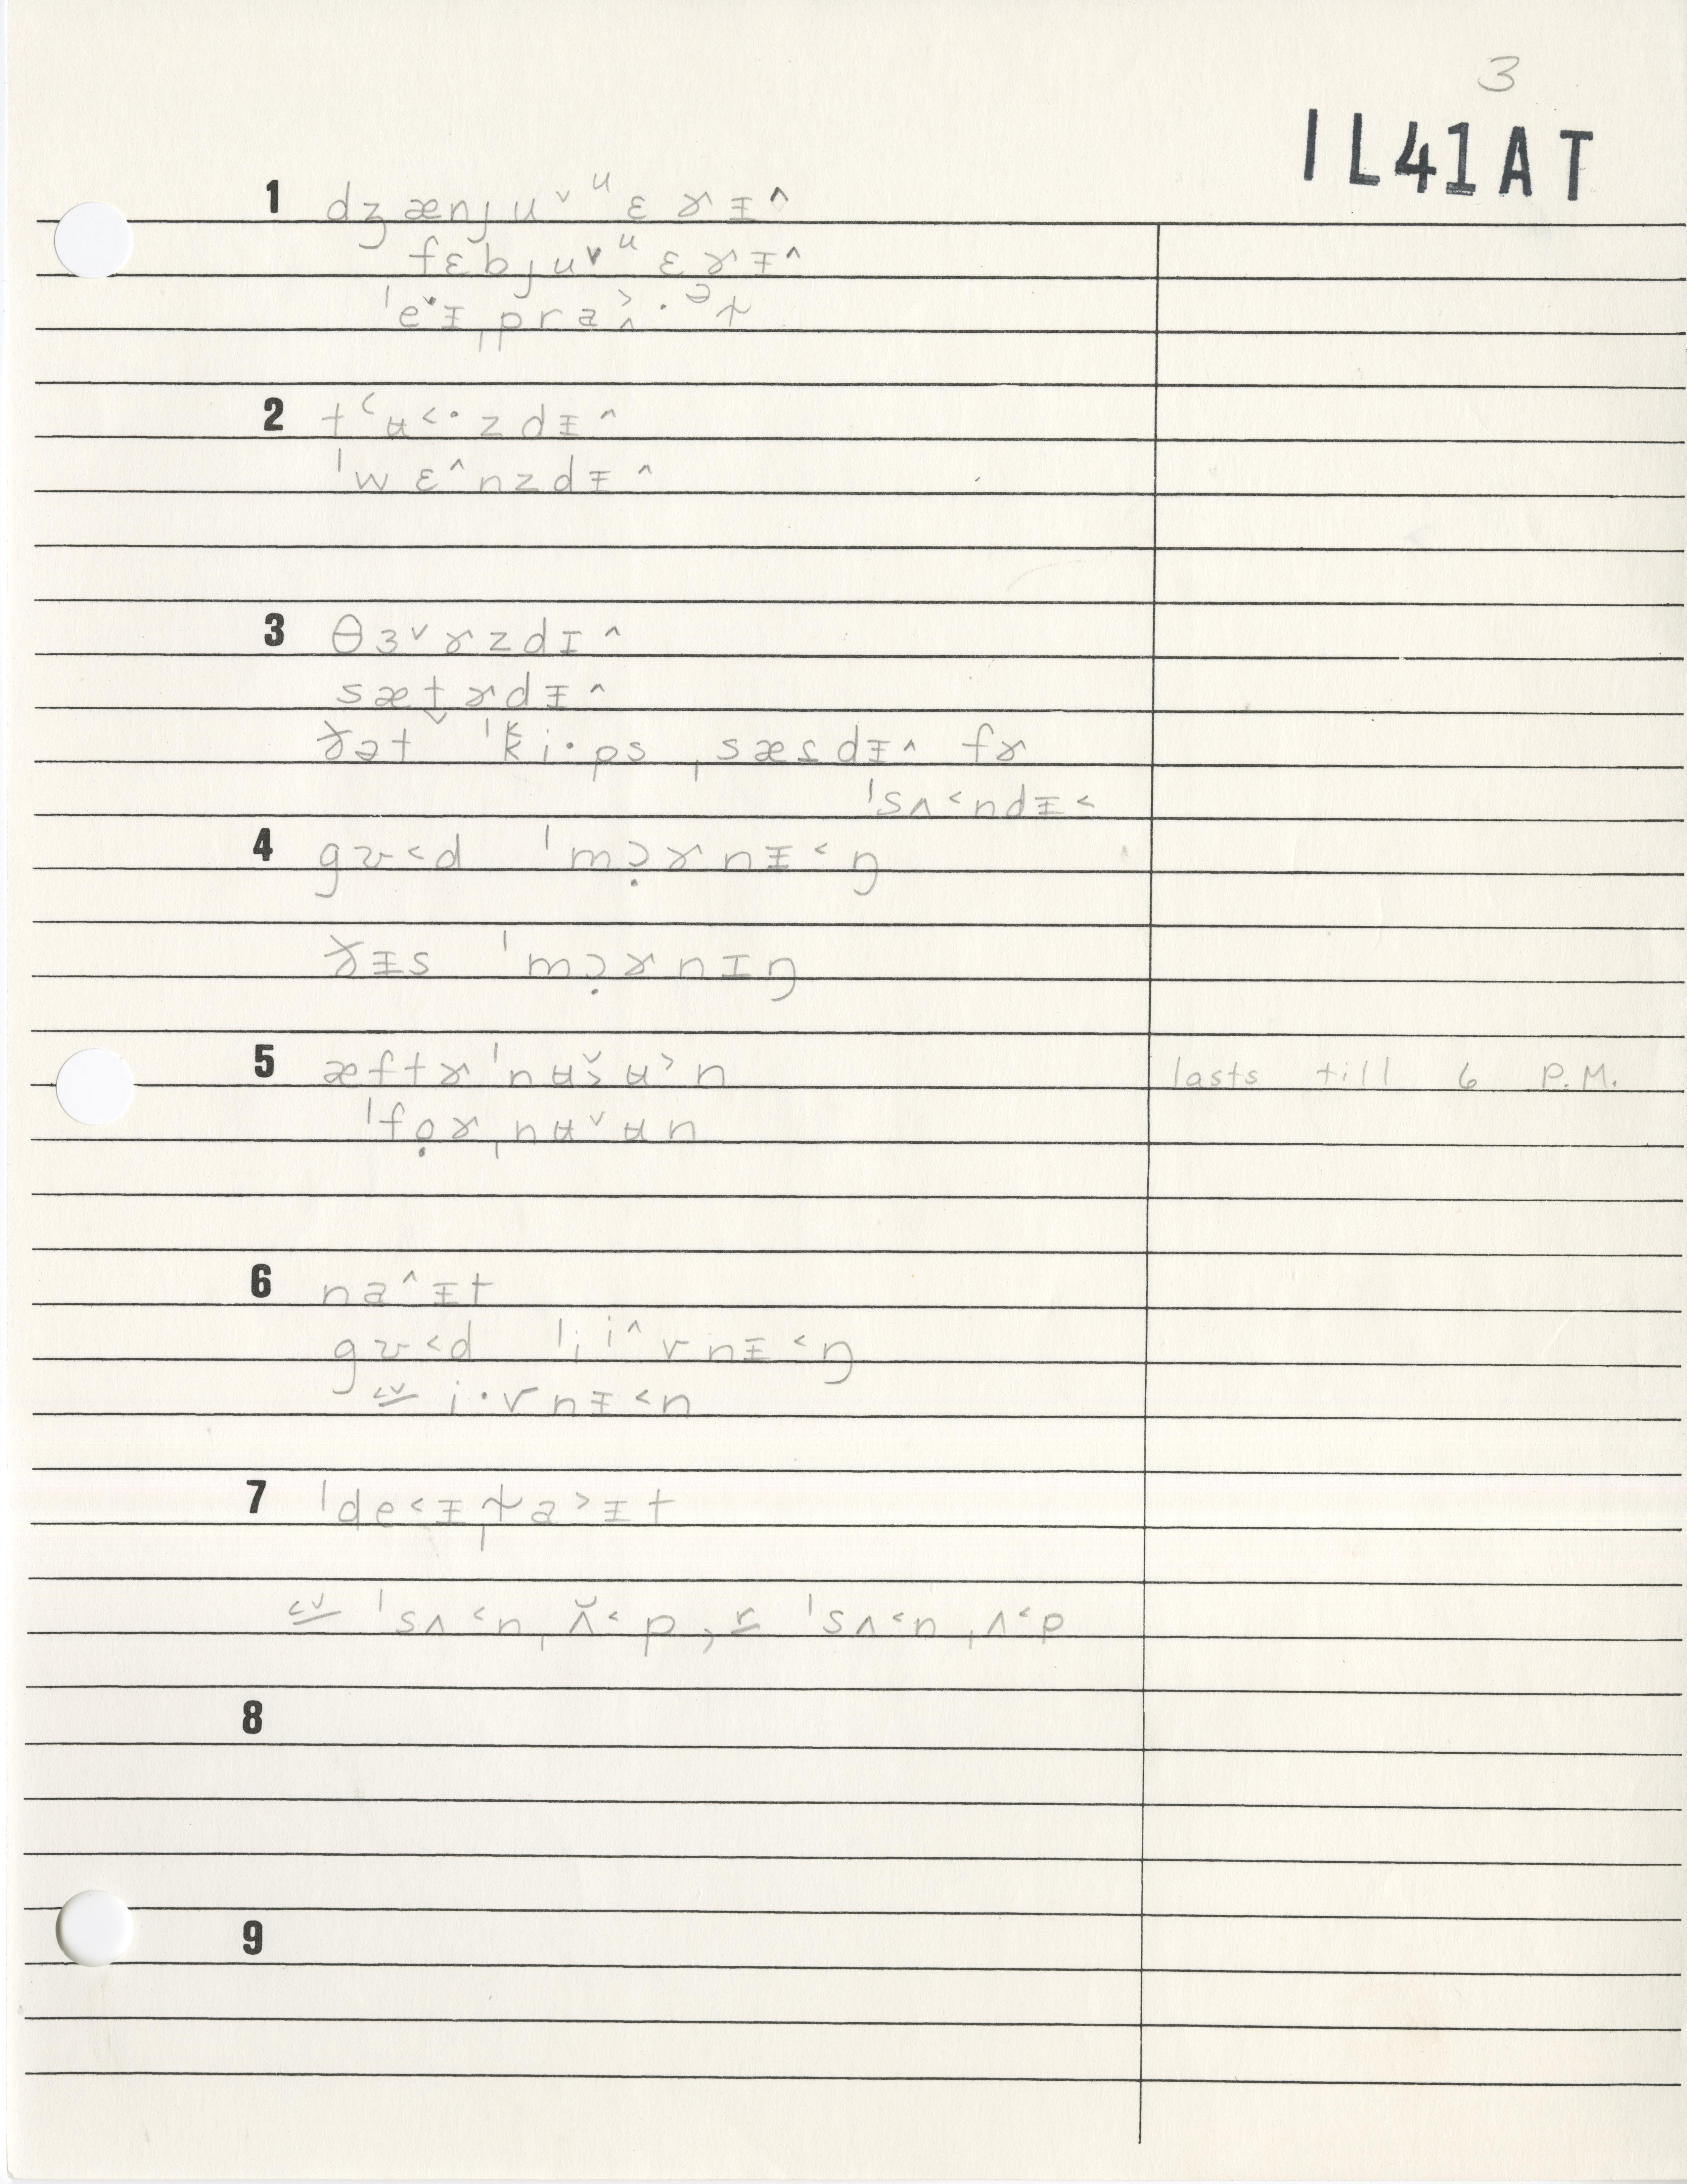 3
IL41AT
1 dʒænjuᵛᵘɛɤɪ̵^
fɛbjuᵛᵘɛɤɪ̵^
ˈeˇɪ̵ˌpraˬ˃·ᵊɫ
2 t˂ʉ˂·zdɪ̵^
ˈwɛ^nzdɪ̵^
3 θɜˇɤzdɪ^
sæt̬ɤdɪ̵^
ɤ̵ət ˈki·ps ˌsæsdɪ̵^ fɤ
ˈsʌ˂ndɪ̵˂
4 gʊ˂d ˈmɔ̣ɤnɪ̵˂ŋ
ɤ̵ɪ̵s ˈmɔ̣ɤnɪŋ
5 æftɤˈnʉˇ˃ʉ˃n lasts till 6 P.M.
ˈfọɤˌnʉˇʉn
6 na^ɪ̵t
gʊ˂d ˈii^vnɪ̵˂ŋ
cv i·vnɪ̵˂n
7 ˈde˂ɪ̵ˌɫa˃ɪ̵t
cv ˈsʌ˂nˌʌ̌˂p, r ˈsʌ˂nˌʌ˂p
8
9